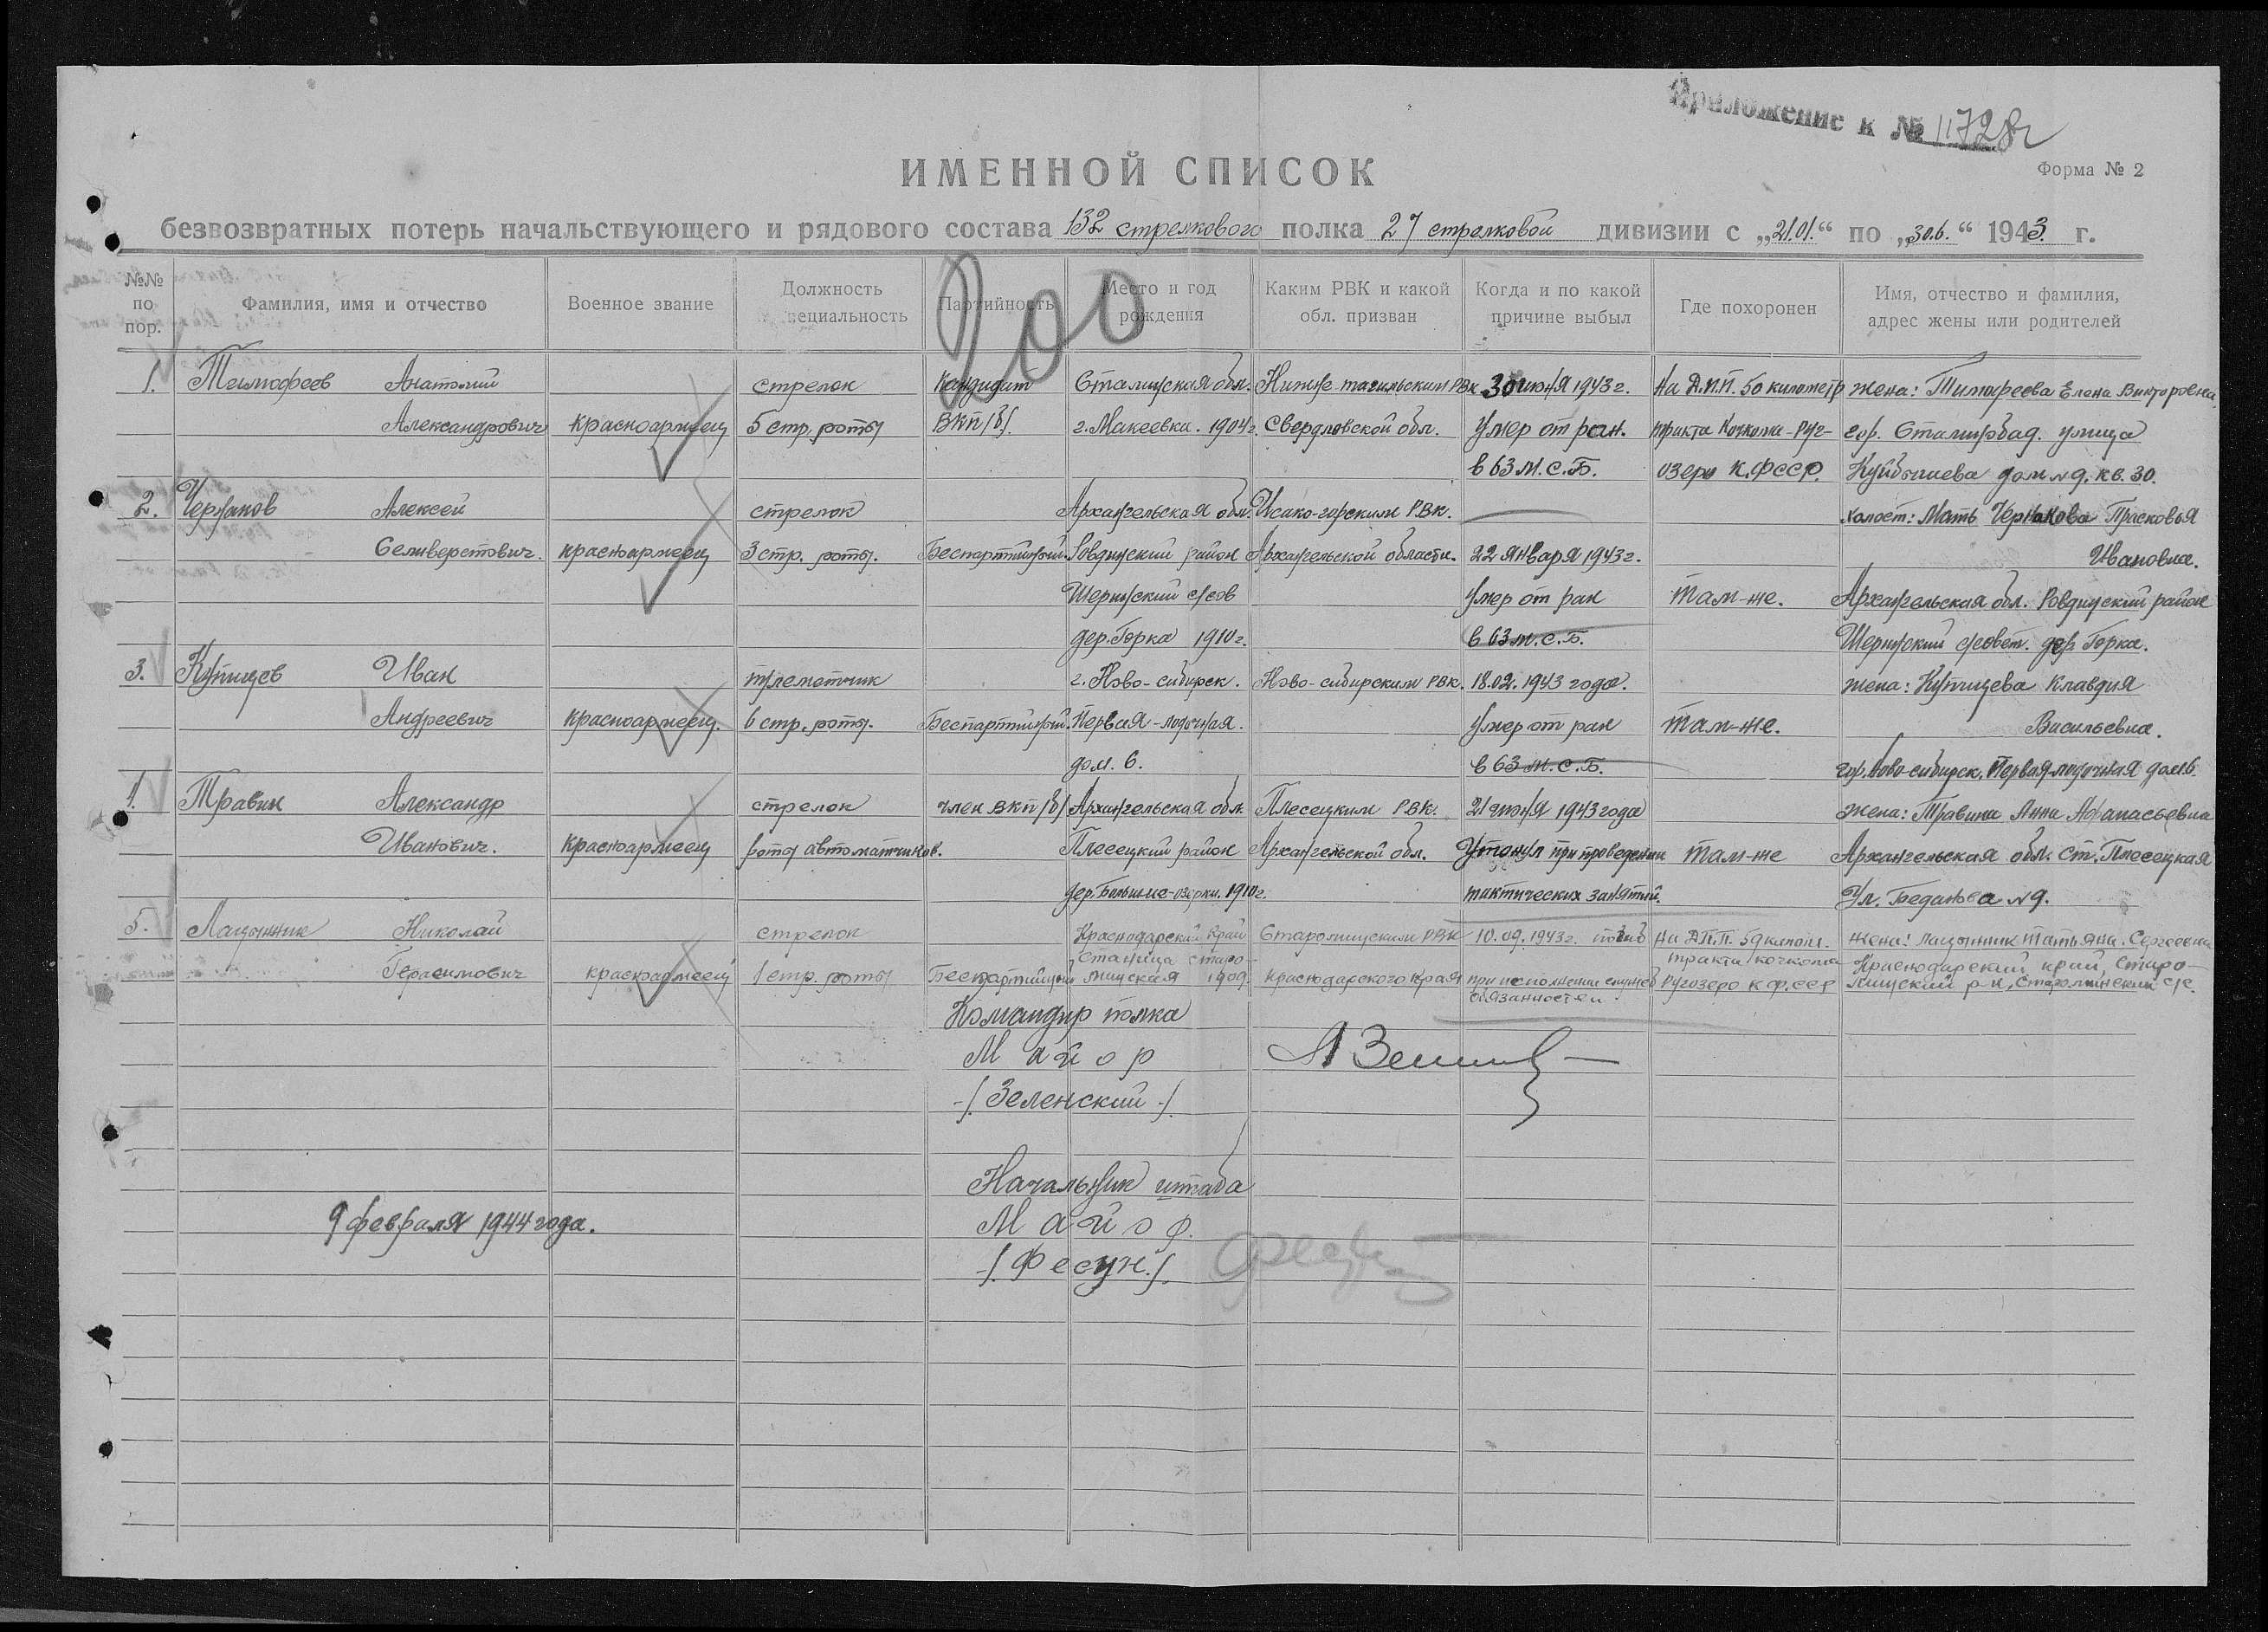 Приложение к № 11728г
Форма № 2
ИМЕННОЙ СПИСОК
безвозвратных потерь начальствующего и рядового состава 132 стрелкового полка 27 стрелковой дивизии с „21.01.“ по „30.6.“ 1943 г.
№№ по пор. Фамилия, имя и отчество Военное звание Должность специальность Партийность Место и год рождения Каким РВК и какой обл. призван Когда и по какой причине выбыл Где похоронен Имя, отчество и фамилия, адрес жены или родителей
200
1. Тимофеев Анатолий стрелок Кандидат Сталинская обл. Нижне-тагильским РВК 30 июня 1943 г. На Д.П.П. 50 километр жена: Тимофеева Елена Викторовна
Александрович красноармеец 5 стр. роты ВКП/б/. г. Макеевка. 1904г. Свердловской обл. Умер от ран. тракта Кочкома-Руг- гор. Сталинобад. улица
в 63 М.С.Б. озеро К.ФССР. Куйбышева дом №9. кв. 30.
2. Чернаков Алексей стрелок Архангельская обл. Исако-горским РВК. холост: Мать Чернакова Прасковья
Селиверстович. красноармеец 3 стр. роты. Беспартийный. Ровдинский район Архангельской области. 22 января 1943 г. Ивановна.
Умер от ран Там-же. Архангельская обл. Ровдинский район
дер. Горка 1910 г. в 63 м.с.Б. дер. Горка.
3. Купцев Иван пулеметчик г. Ново-сибирск. Ново-сибирским РВК. 18.02.1943 года. жена: Клавдия
Андреевич красноармеец. 6 стр. роты. Беспартийный. Первая- Умер от ран Там-же. Васильевна.
дом. 6. в 63 м.с.Б. гор. Ново-сибирск, Первая- дом 6.
4. Травин Александр стрелок член ВКП/б/ Архангельская обл. Плесецким РВК. 21 июня 1943 года жена: Травина Анна Афанасьевна
Иванович. красноармеец роты автоматчиков. Плесецкий район Архангельской обл. Утонул при проведении Там-же Архангельская обл. ст. Плесецкая
дер. Большие-озерки. 1910г. тактических занятий. Ул. №9.
5. Лацынник Николай стрелок Краснодарский край Староминским РВК 10.09.1943г. погиб На Д.П.П. 50 килом. жена: Лацынник Татьяна Сергеевна
Станица старо- тракта кочкома- Краснодарский край, Старо-
Герасимович красноармеец 1 стр. роты Беспартийный минская 1909. Краснодарского Края при исполнении служеб Ругозеро К.Ф.ССР минский р-н, Староминский с/с.
обязанностей.
Командир полка
Майор
-/. Зеленский -/.
Начальник штаба
9 февраля 1944 года. Майор.
-/. Фесун. /.